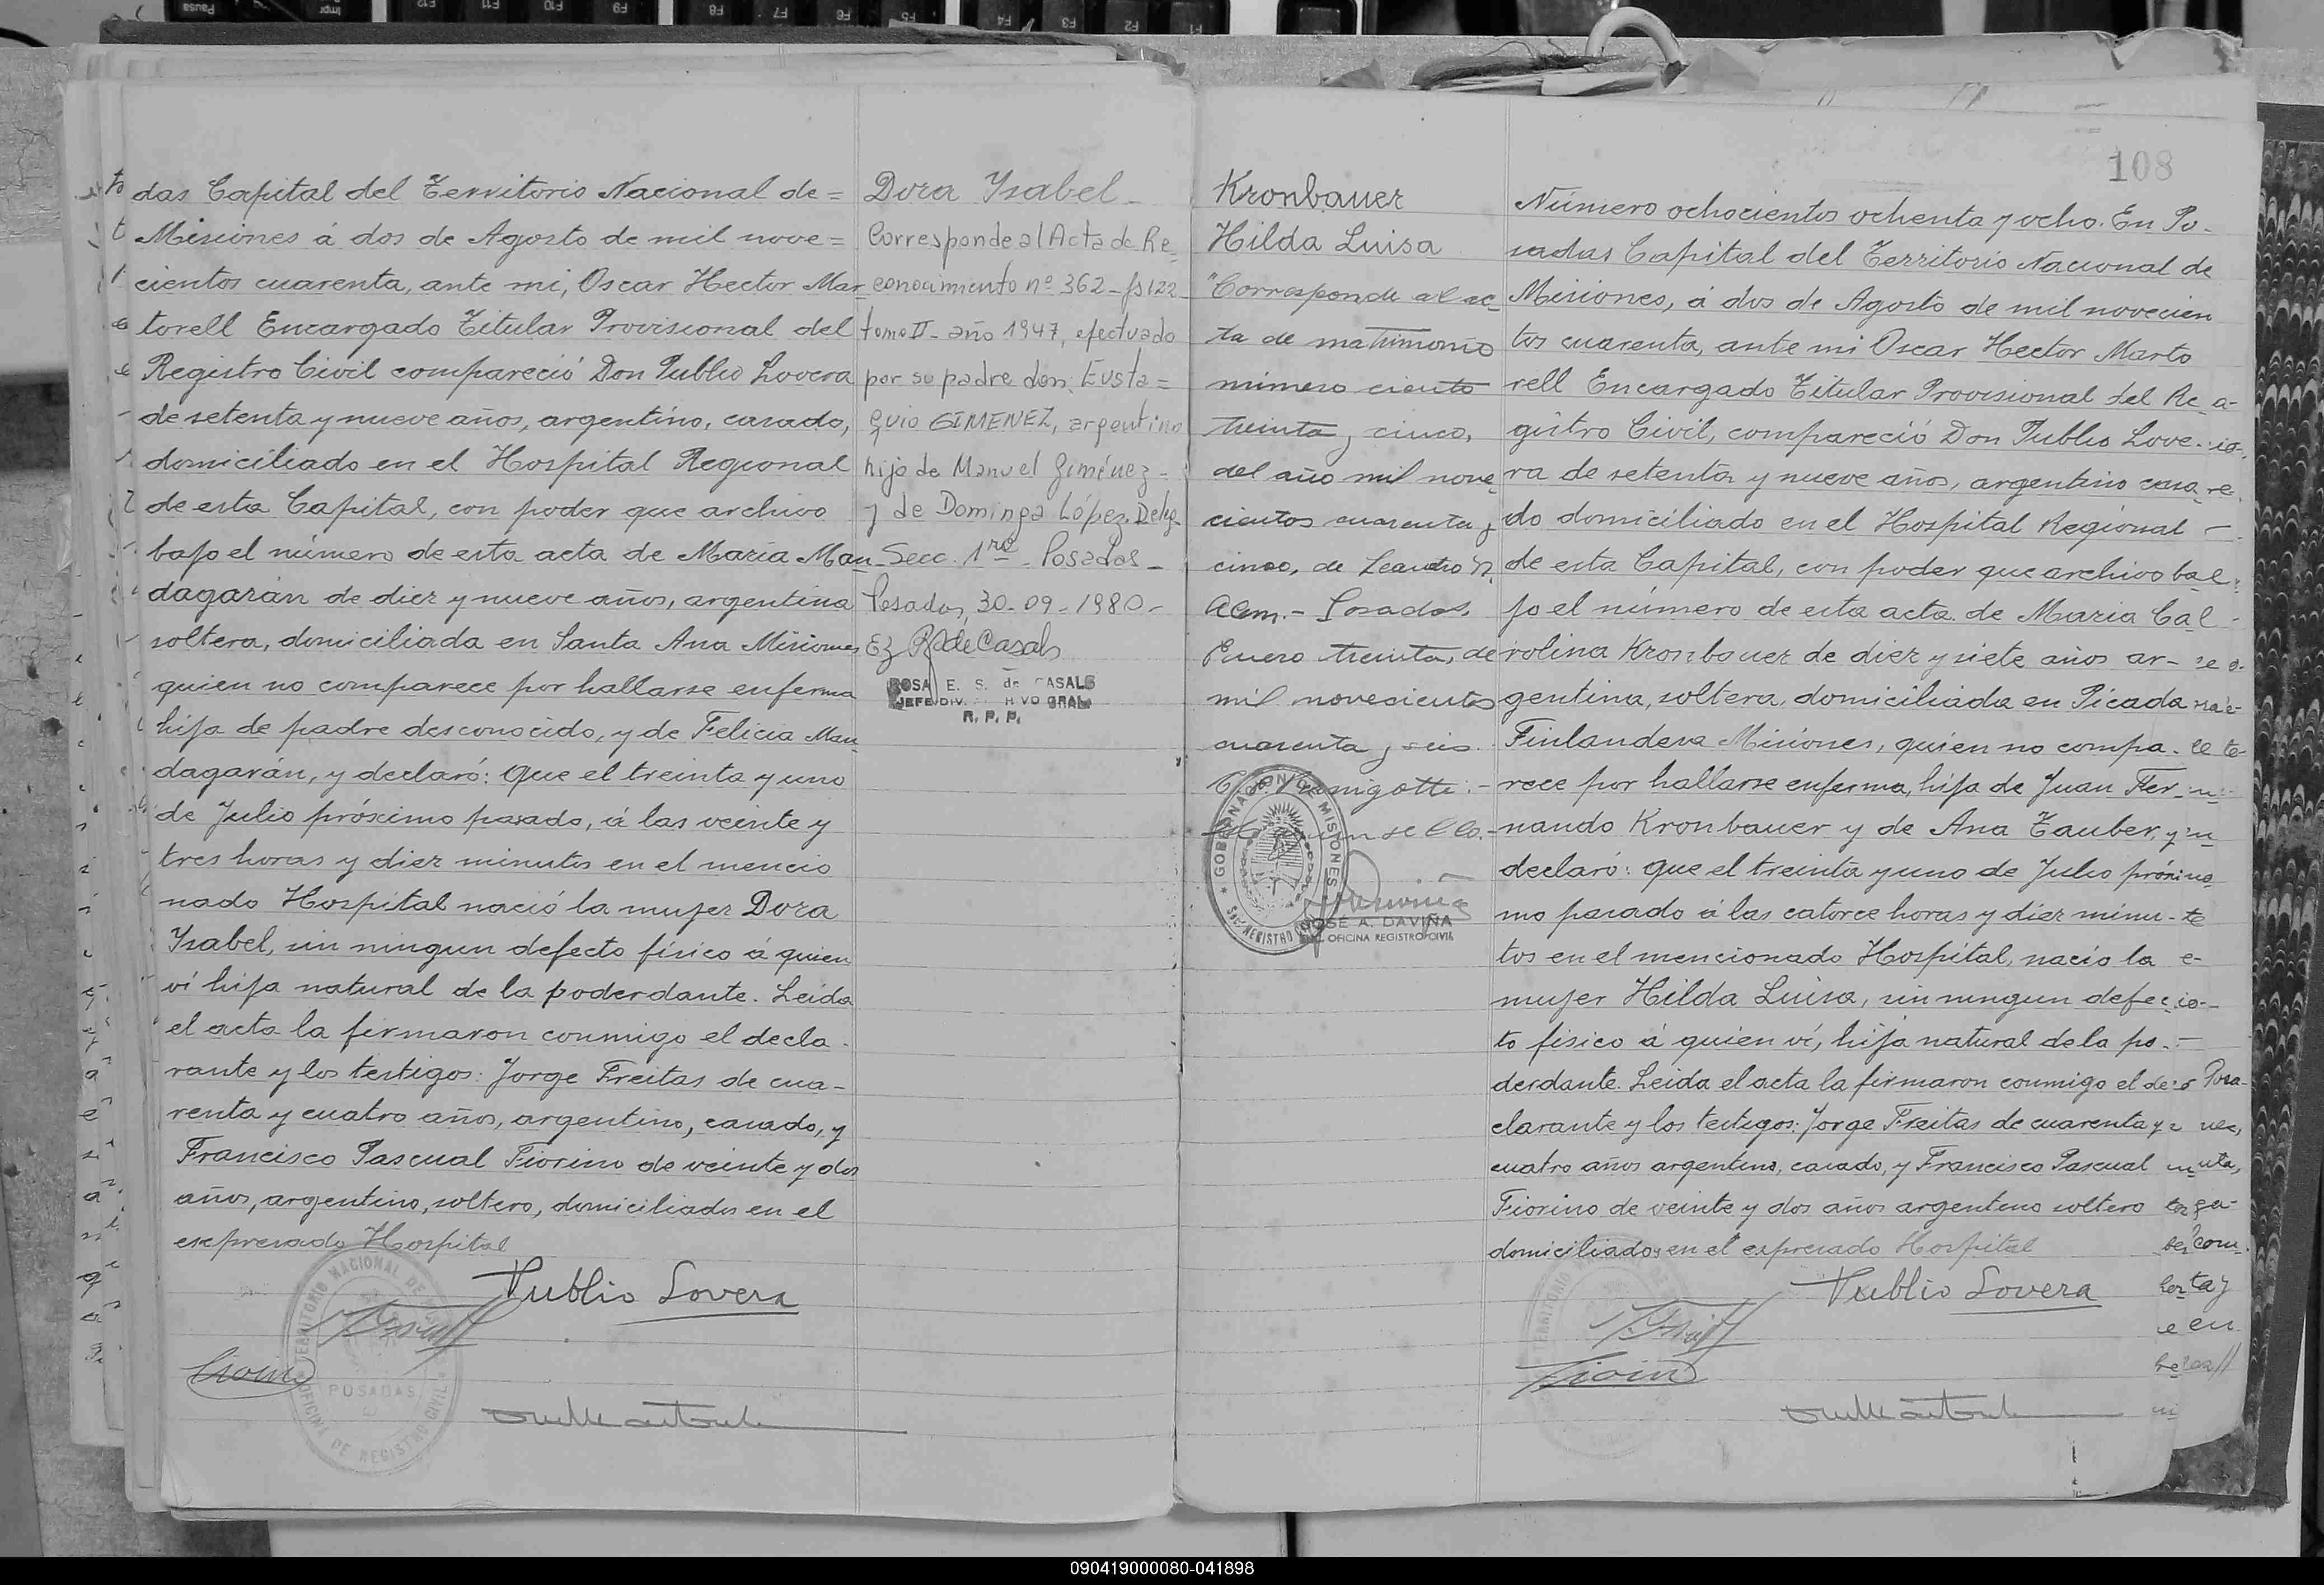 das Capital del Territorio Nacional de=
Misiones á dos de Agosto de mil nove=
cientos cuarenta, ante mi, Oscar Hector Mar
torell Encargado Titular Provisional del
Registro Civil compareció Don Publio Lovera
de setenta y nueve años, argentino, casado,
domiciliado en el Hospital Regional
de esta Capital, con poder que archivo
bajo el número de esta acta de Maria Man
dagarán de diez y nueve años, argentina
soltera, domiciliada en Santa Ana Misiones
quien no comparece por hallarse enferma
hija de padre desconocido, y de Felicia Man
dagarán, y declaró: Que el treinta y uno
de Julio próximo pasado, á las veinte y
tres horas y diez minutos en el mencio
nado Hospital nació la mujer Dora
Ysabel, sin ningun defecto físico á quien
ví hija natural de la poderdante. Leida
el acta la firmaron conmigo el decla-
rante y los testigos: Jorge Freitas de cua-
renta y cuatro años, argentino, casado, y
Francisco Pascual Fiorino de veinte y dos
años, argentino, soltero, domiciliados en el
expresado Hospital
Publio Lovera
TERRITORIO NACIONAL DE
POSADAS
OFICINA DE REGISTRO CIVIL
Dora Ysabel-
Corresponde al Acta de Re-
conocimiento nº 362-fs 122
tomo II- año 1947, efectuado
por su padre don: Eusta=
quio GIMENEZ, argentino
hijo de Manuel Giménez-
y de Dominga López. Deleg.
Secc. 1ra - Posadas-
Posadas, 30-09-1980-
ROSA E. S. de CASALS
JEFE DIV. GRAL
R. P. P.
108
Kronbauer
Hilda Luisa
"Corresponde al ac
ta de matrimonio
número ciento
treinta y cinco,
del año mil nove
cientos cuarenta y
cinco, de Leandro N.
Alem.- Posadas
Enero treinta, de
mil novecientos
cuarenta y seis.
GOBERNACION DE MISIONES
REGISTRO
JOSÉ A. DAVIÑA
OFICINA REGISTRO CIVIL
Número ochocientos ochenta y ocho. En Po-
sadas Capital del Territorio Nacional de
Misiones, á dos de Agosto de mil novecien
tos cuarenta, ante mi Oscar Hector Marto
rell Encargado Titular Provisional del Re
gistro Civil, compareció Don Publio Love-
ra de setenta y nueve años, argentino casa
do domiciliado en el Hospital Regional
de esta Capital, con poder que archivo ba
jo el número de esta acta de Maria Ca
rolina Kronbauer de diez y siete años ar-
gentina, soltera, domiciliada en Picada
Finlandesa Misiones, quien no compa-
rece por hallarse enferma, hija de Juan Fer
nando Kronbauer y de Ana Tauber, y
declaró: Que el treinta y uno de Julio próxi
mo pasado á las catorce horas y diez minu-
tos en el mencionado Hospital, nació la
mujer Hilda Luisa, sin ningun defec
to físico á quien ví, hija natural de la po-
derdante. Leida el acta la firmaron conmigo el de
clarante y los testigos: Jorge Freitas de cuarenta y
cuatro años argentino, casado, y Francisco Pascual
Fiorino de veinte y dos años argentino soltero
domiciliados en el expresado Hospital
Publio Lovera
090419000080-041898